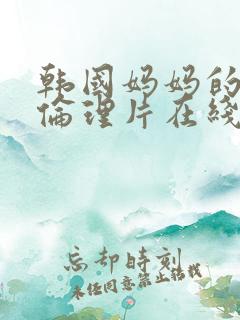 韩国妈妈的
伦理片在线
忘却时刻
未经同意禁止转载